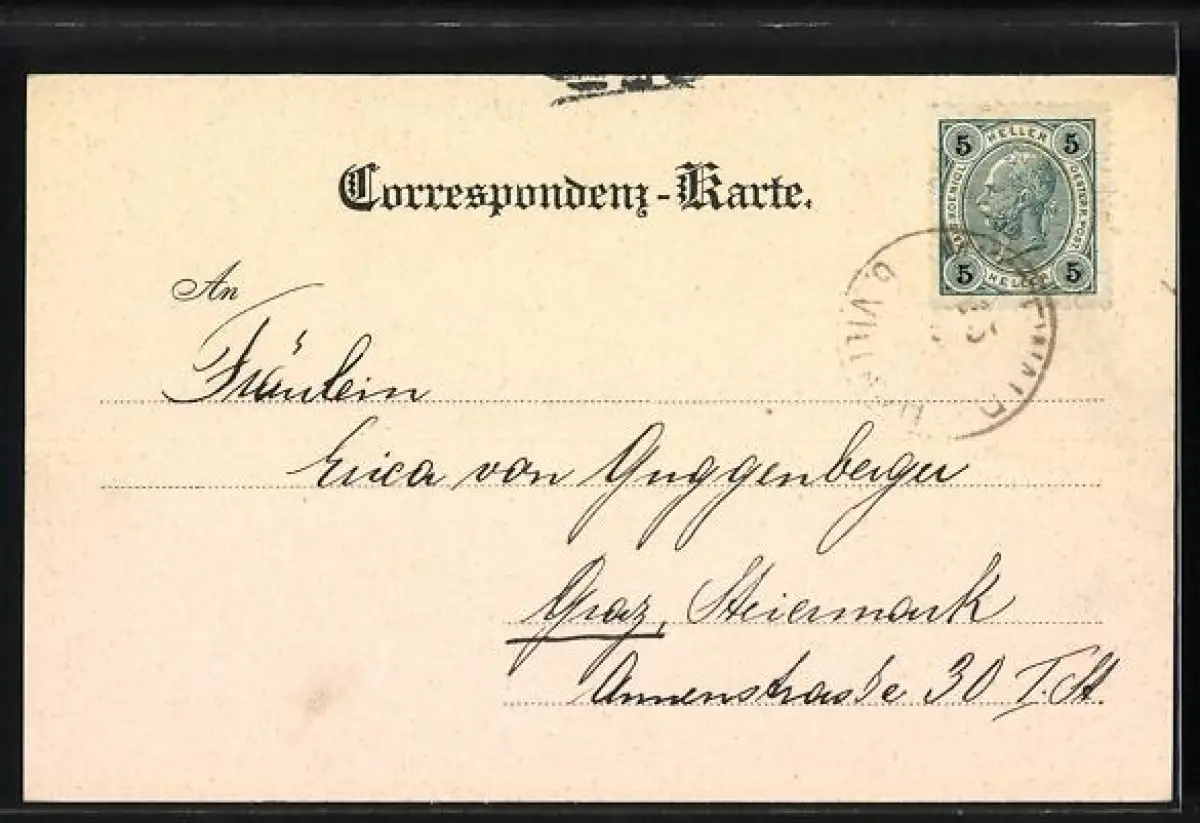 Correspondenz-Karte.
5 HELLER 5
KAIS. KOENIGL. OESTERR. POST.
5 HELLER 5
An
Fräulein
Erica von Guggenberger
Graz, Steiermark
Annenstrasse 30 I. St.